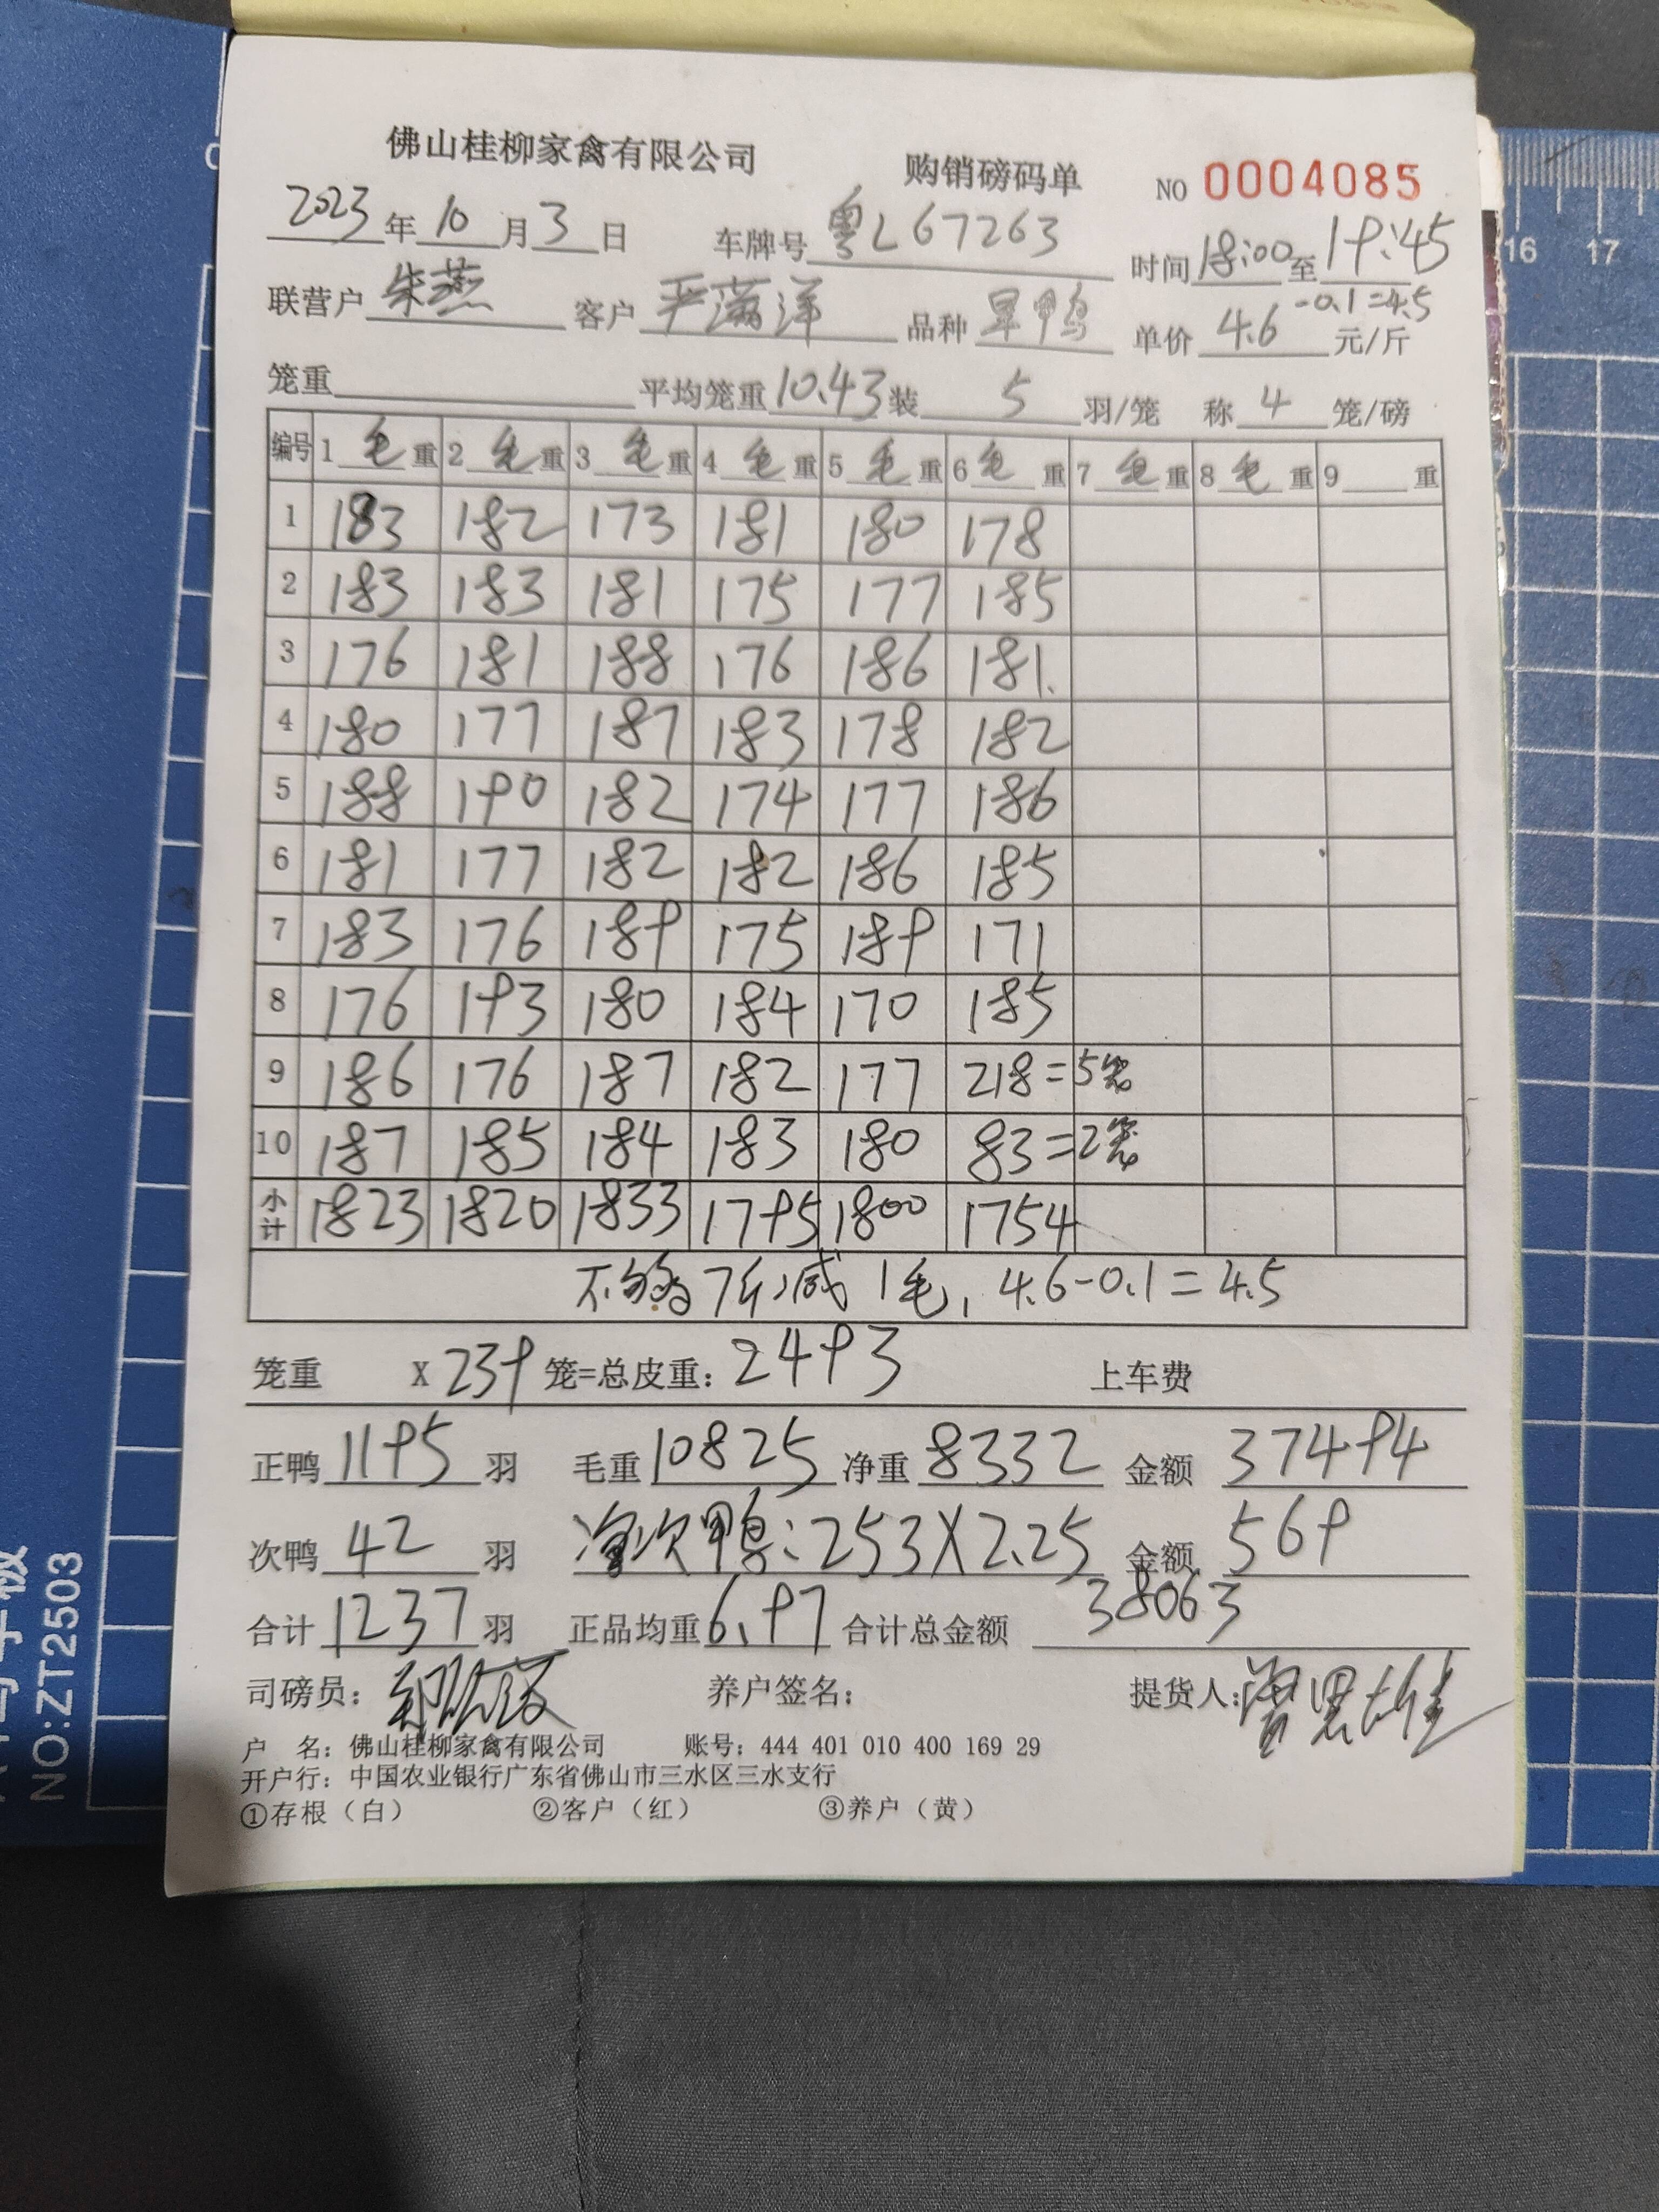 佛山桂柳家禽有限公司 购销磅码单 NO 0004085
2023年10月3日 车牌号 粤L67263 时间18:00至19:45
联营户 朱燕 客户 严满洋 品种 旱鸭 单价 4.6 -0.1=4.5 元/斤
笼重 平均笼重10.43装 5 羽/笼 称 4 笼/磅
编号 1 毛 重 2 毛 重 3 毛 重 4 毛 重 5 毛 重 6 毛 重 7 毛 重 8 毛 重 9 重
1 183 182 173 181 180 178
2 183 183 181 175 177 185
3 176 181 188 176 186 181.
4 180 177 187 183 178 182
5 188 190 182 174 177 186
6 181 177 182 182 186 185
7 183 176 189 175 189 171
8 176 193 180 184 170 185
9 186 176 187 182 177 218=5笼
10 187 185 184 183 180 83=2笼
小计 1823 1820 1833 1795 1800 1754
不够7斤减1毛, 4.6-0.1=4.5
笼重 X 239 笼=总皮重: 2493 上车费
正鸭 1195 羽 毛重 10825 净重 8332 金额 37494
次鸭 42 羽 次鸭:253X2.25 金额 569
合计 1237 羽 正品均重 6.97 合计总金额 38063
司磅员: 养户签名: 提货人:曾思雄
户 名: 佛山桂柳家禽有限公司 账号: 444 401 010 400 169 29
开户行: 中国农业银行广东省佛山市三水区三水支行
①存根(白) ②客户(红) ③养户(黄)
NO:ZT2503
16 17